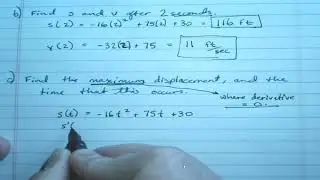 b) Find s and v after 2 seconds.
s(2) = -16(2)² + 75(2) + 30 = 116 ft
v(2) = -32(2) + 75 = 11 ft/sec
c) Find the maximum displacement, and the
time that this occurs.
where derivative
= 0.
s(t) = -16t² + 75t + 30
s'(